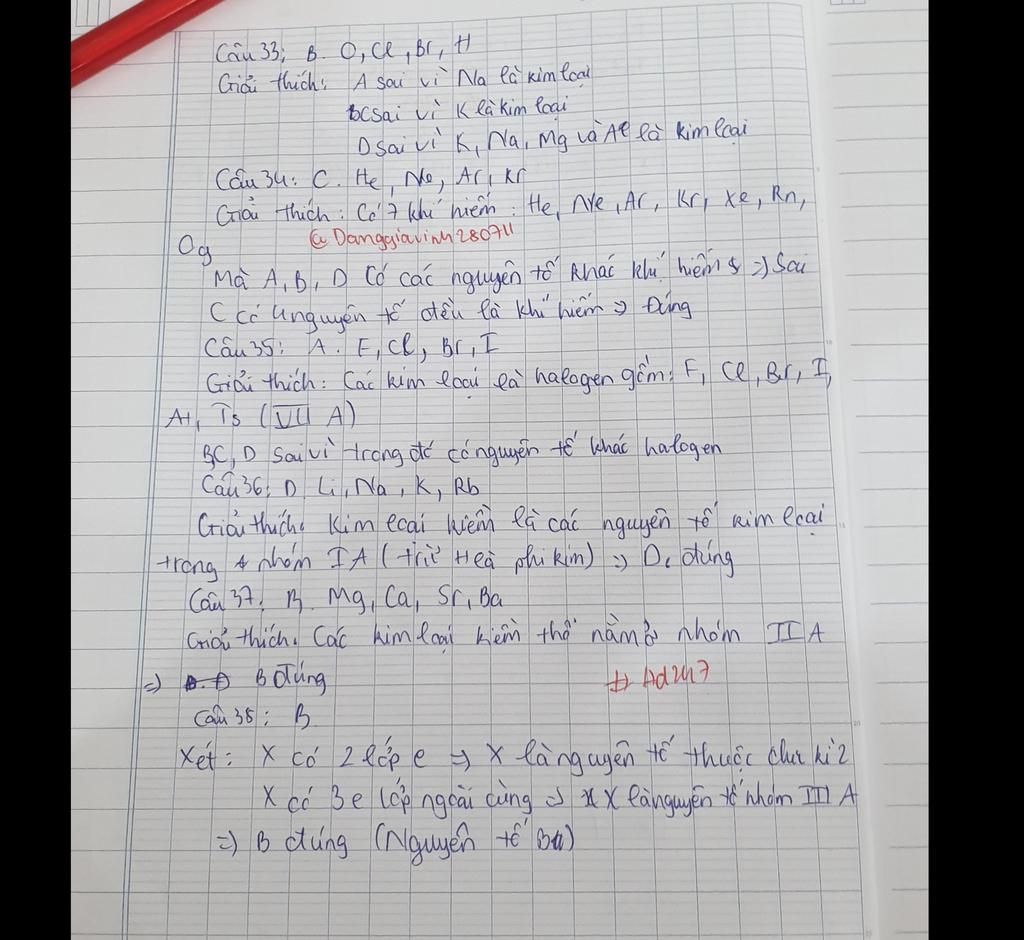 Câu 33: B. O, Cl, Br, H
Giải thích: A sai vì Na là kim loại
C sai vì K là kim loại
D sai vì K, Na, Mg và Al là kim loại
Câu 34: C. He, Ne, Ar, Kr
Giải thích: Có 7 khí hiếm: He, Ne, Ar, Kr, Xe, Rn,
Og
@Danggiavinh280711
Mà A, B, D có các nguyên tố khác khí hiếm => Sai
C có 4 nguyên tố đều là khí hiếm => Đúng
Câu 35: A. F, Cl, Br, I
Giải thích: Các kim loại là halogen gồm: F, Cl, Br, I,
At, Ts (VII A)
B, C, D sai vì trong đó có nguyên tố khác halogen
Câu 36: D Li, Na, K, Rb
Giải thích: Kim loại kiềm là các nguyên tố kim loại
trong nhóm IA (trừ H là phi kim) => D đúng
Câu 37: B. Mg, Ca, Sr, Ba
Giải thích: Các kim loại kiềm thổ nằm ở nhóm IIA
=> B đúng
# Ad2k7
Câu 38: B
Xét: X có 2 lớp e => X là nguyên tố thuộc chu kì 2
X có 3e lớp ngoài cùng => X là nguyên tố nhóm III A
=> B đúng (Nguyên tố